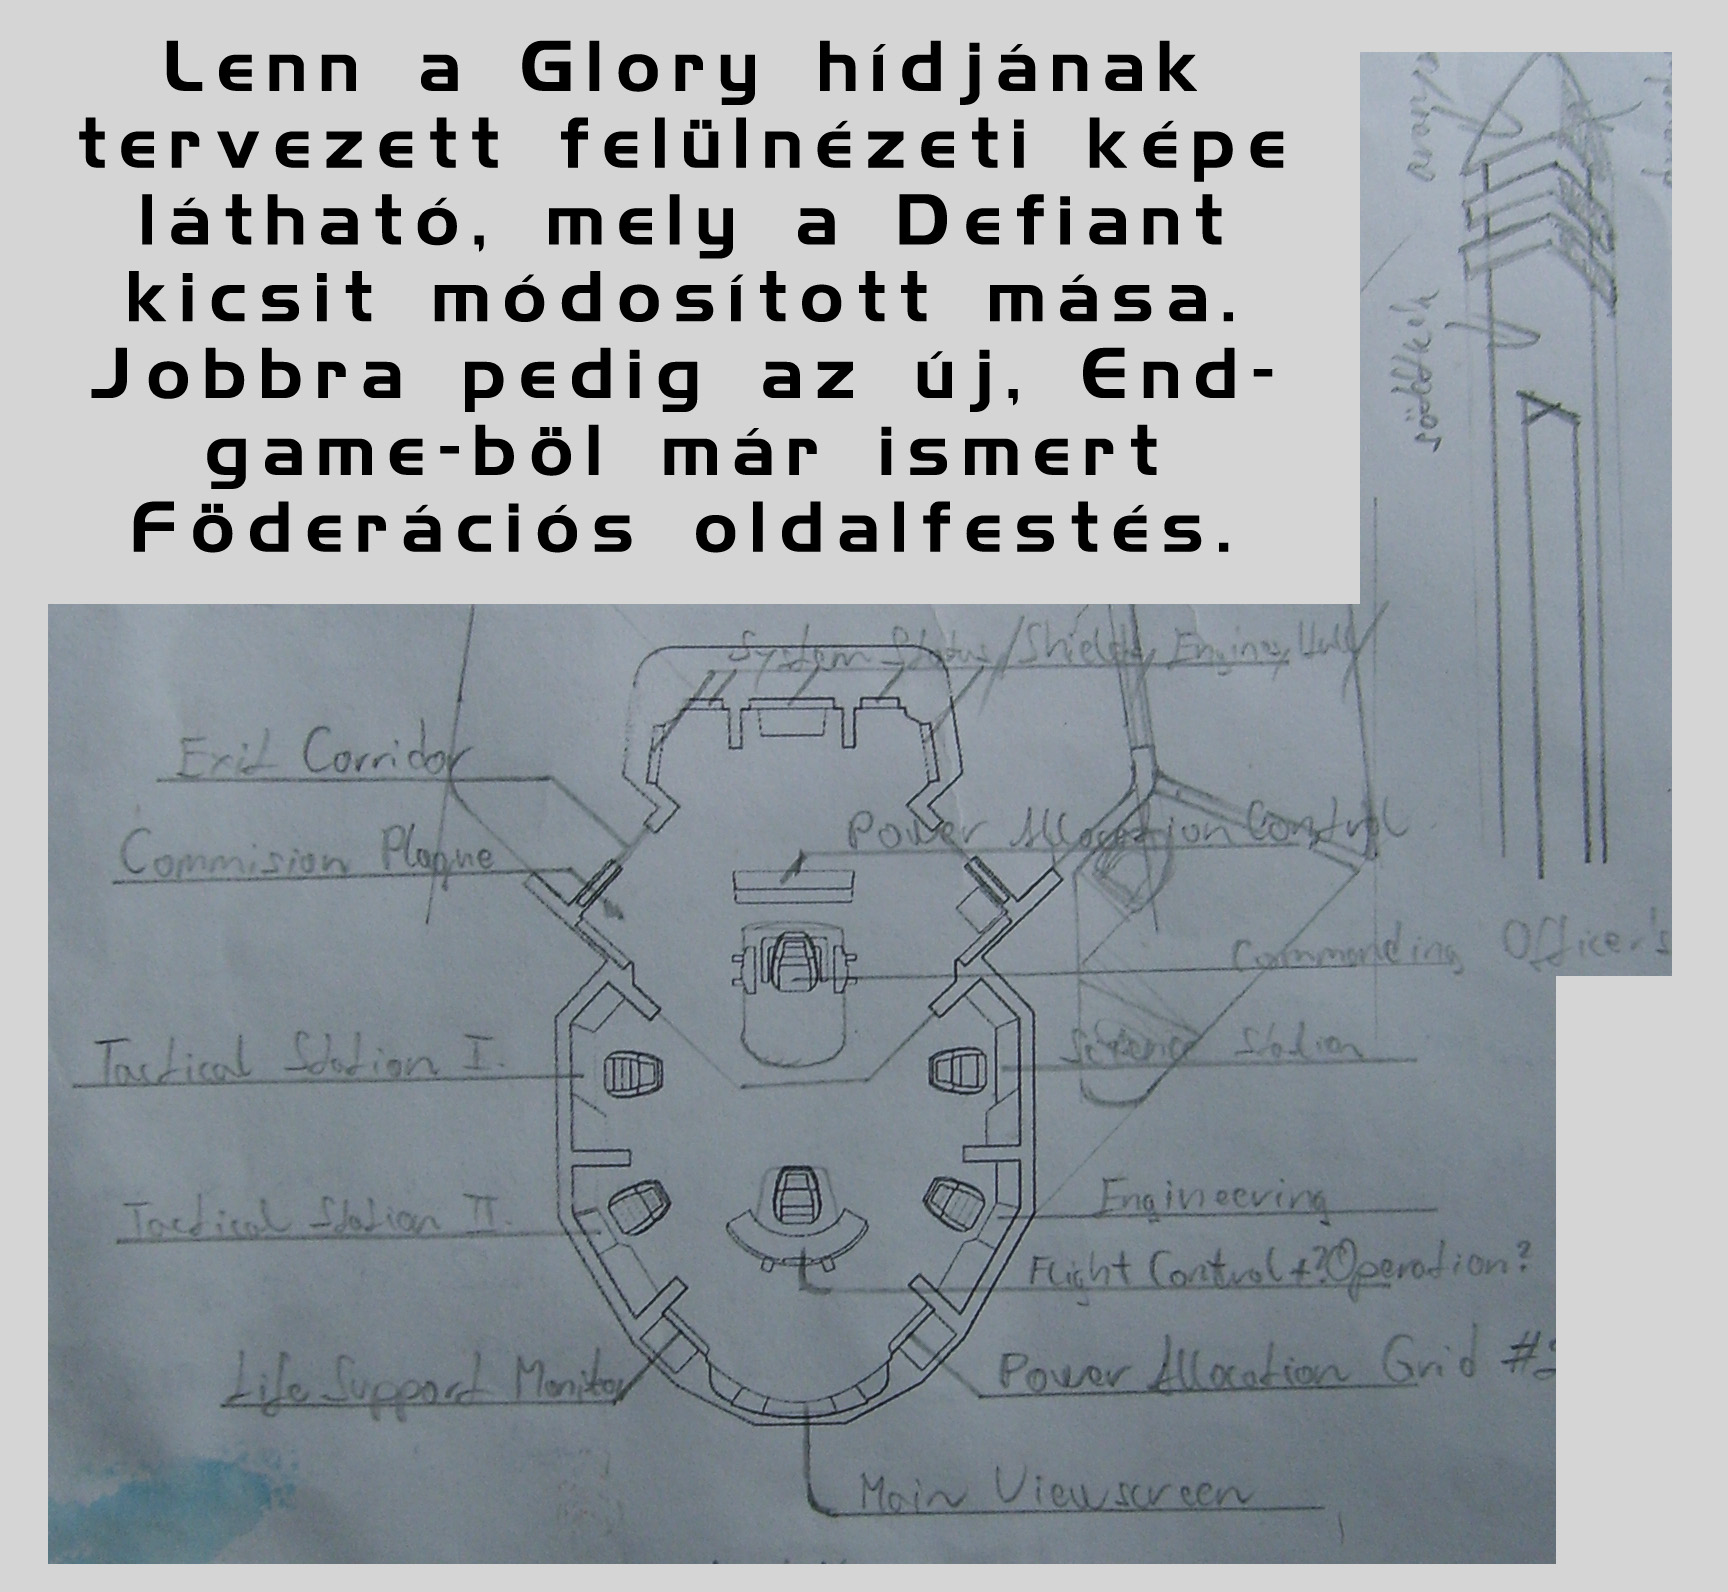 Lenn a Glory hídjának
tervezett felülnézeti képe
látható, mely a Defiant
kicsit módosított mása.
Jobbra pedig az új, End-
game-böl már ismert
Föderációs oldalfestés.
arany
sötétkék
System Status/Shields, Engine, Hull
Exit Corridor
Power Allocation Control
Commision Plaque
Commanding Officer's
Tactical Station I.
Science Station
Tactical Station II.
Engineering
Flight Control+?Operation?
Life Support Monitor
Power Allocation Grid #2
Main Viewscreen